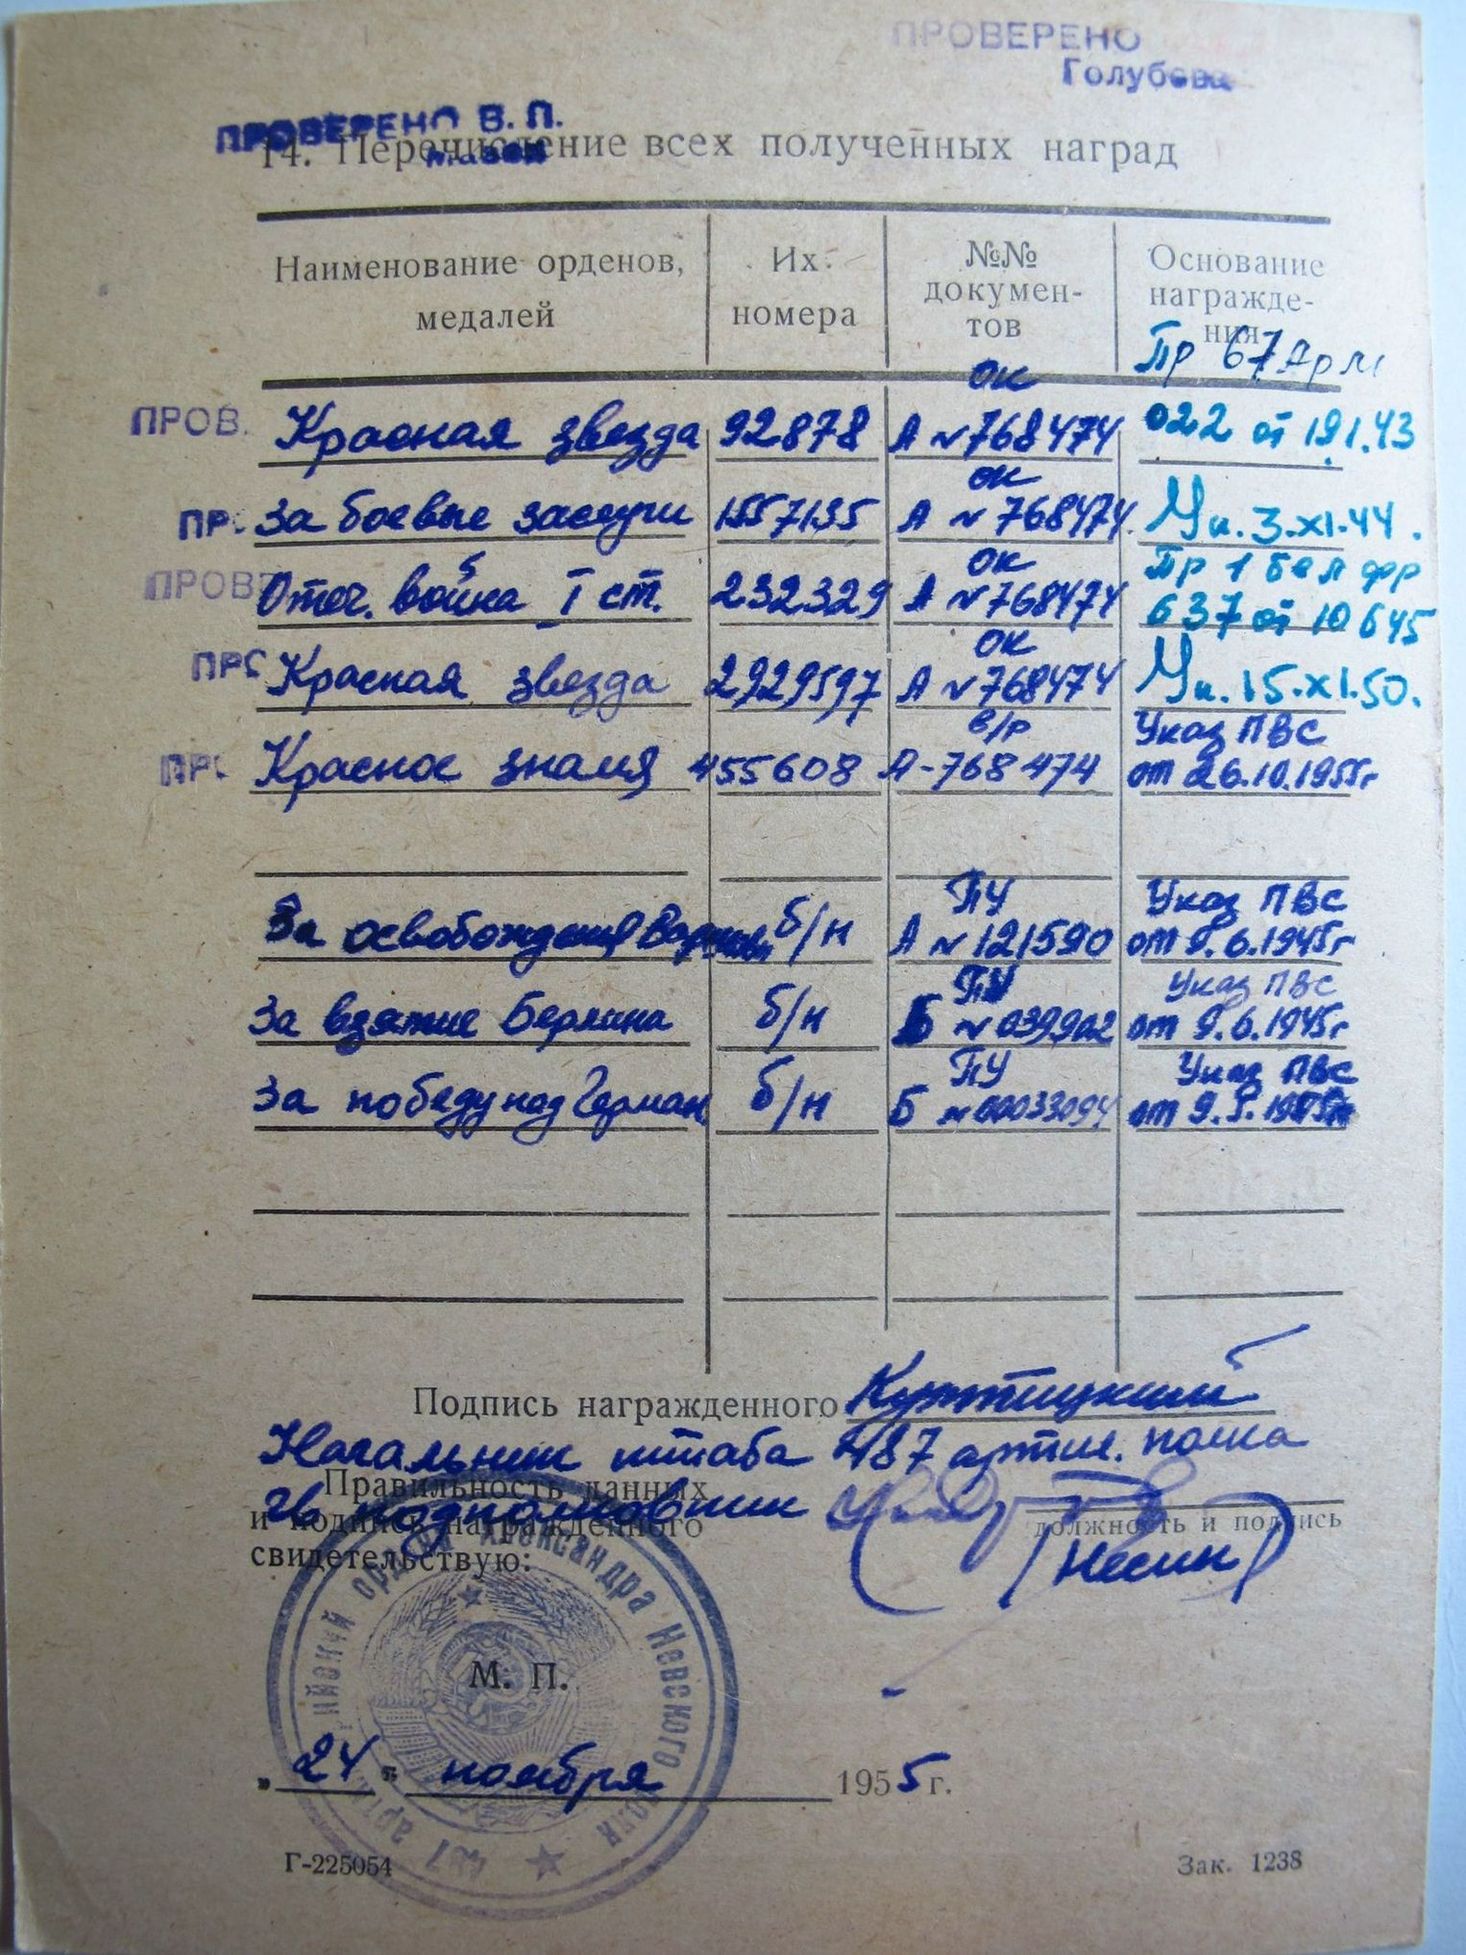 ПРОВЕРЕНО
Голубева
ПРОВЕРЕНО В. П.
14. Перечисление всех полученных наград
Наименование орденов, медалей
Их номера
№№ докумен-
тов
Основание
награжде-
ния
Пр 67 Арм
ок
ПРОВ. Красная звезда 92878 А № 768474 022 от 19.1.43
ок
ПР. За боевые заслуги 1557135 А № 768474 Ук. 3.XI.44.
ок Пр 1 бел фр
ПРОВЕ Отеч. война I ст. 232329 А № 768474 637 от 10 6 45
ок
ПРО Красная звезда 2929597 А № 768474 Ук. 15.XI.50.
в/р Указ ПВС
ПРО Красное знамя 455608 А-768474 от 26.10.1955г
ПУ Указ ПВС
За освобождение Варшавы б/н А № 121590 от 9.6.1945г
ПУ Указ ПВС
За взятие Берлина б/н Б № 039902 от 9.6.1945г
ПУ Указ ПВС
За победу над Герман. б/н Б № 00033094 от 9.5.1945г
Подпись награжденного
Начальник штаба 487 артил. полка
Правильность данных
гв подполковник
и подписи награжденного
должность и подпись
свидетельствую:
Несин
орде Александра Невского полк
487 арт
М. П.
„ 24 " ноября 1955 г.
Г-225054
Зак. 1238